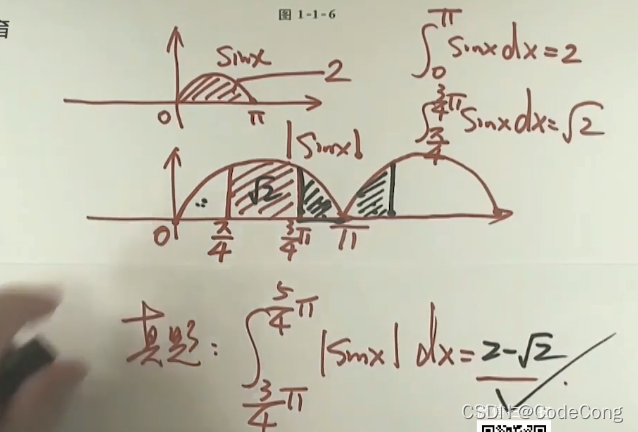 育
图 1-1-6
sinx
2
0
π
∫_0^π sinxdx=2
∫_{π/4}^{3/4 π} sinxdx=√2
|sinx|
√2
0
π/4
3/4 π
π
真题: ∫_{3/4 π}^{5/4 π} |sinx| dx=2-√2
CSDN @CodeCong